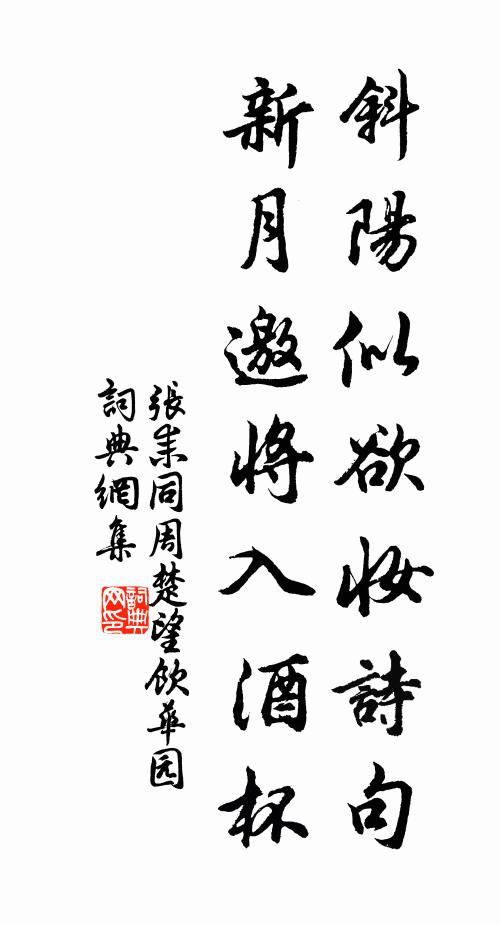 斜陽似欲妝詩句
新月邀將入酒杯
張耒同周楚望飲華园
詞典網集
詞典网印